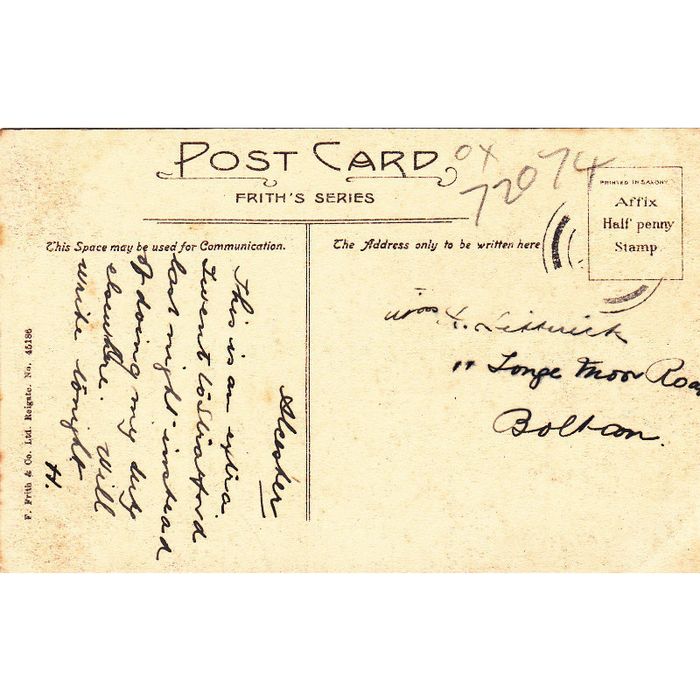 POST CARD
FRITH'S SERIES
OX
72074
PRINTED IN SAXONY.
Affix
Half penny
Stamp.
This Space may be used for Communication.
The Address only to be written here
Alcester
This is an extra.
I went to Stratford
last night instead
of doing my duty
elsewhere. Will
write tonight
H.
Miss
11 Tonge Moor Roa
Bolton.
F. Frith & Co. Ltd. Reigate. No. 45186